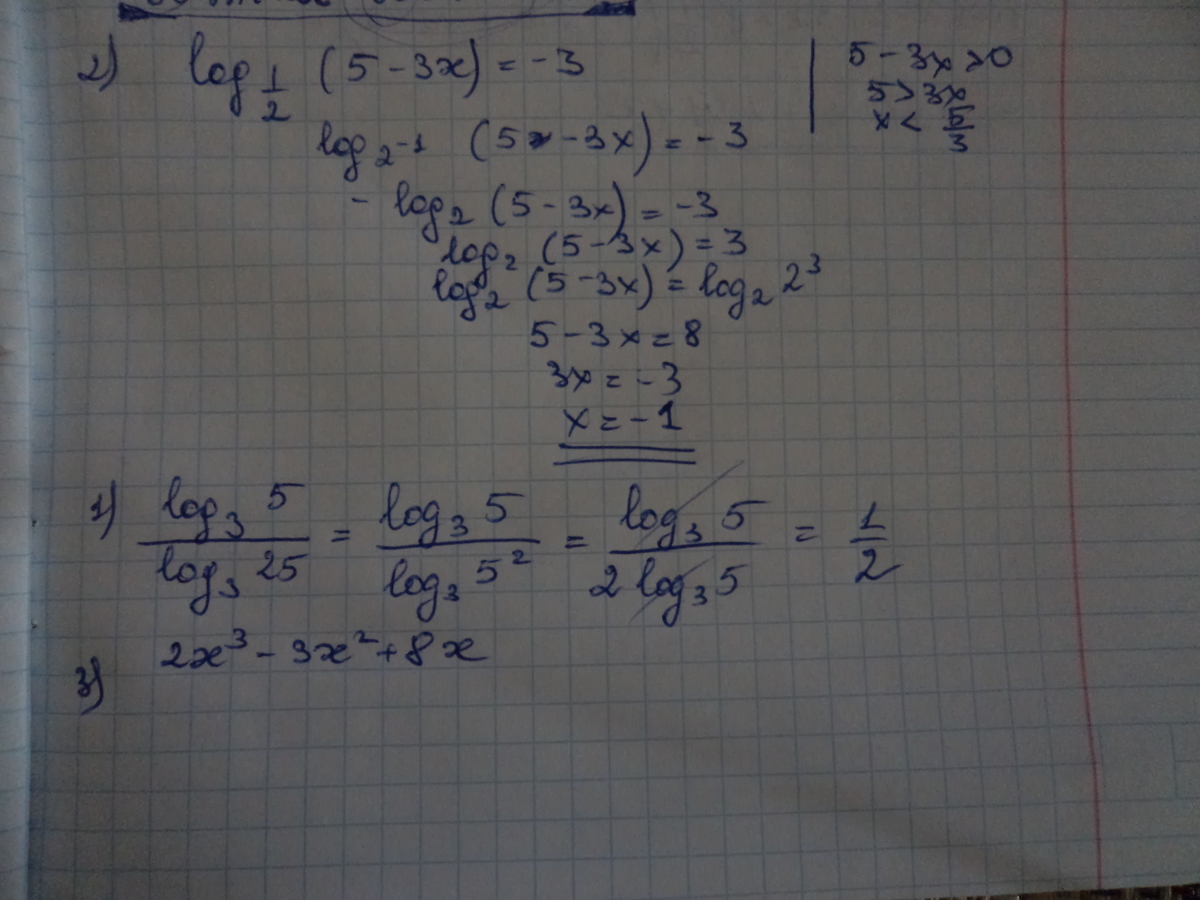 2) log_{1/2} (5 - 3x) = -3
5 - 3x > 0
5 > 3x
x < 5/3
log_{2^{-1}} (5 - 3x) = -3
- log_2 (5 - 3x) = -3
log_2 (5 - 3x) = 3
log_2 (5 - 3x) = log_2 2^3
5 - 3x = 8
3x = -3
x = -1
1) log_3 5 / log_3 25 = log_3 5 / log_3 5^2 = log_3 5 / 2 log_3 5 = 1/2
3) 2x^3 - 3x^2 + 8x